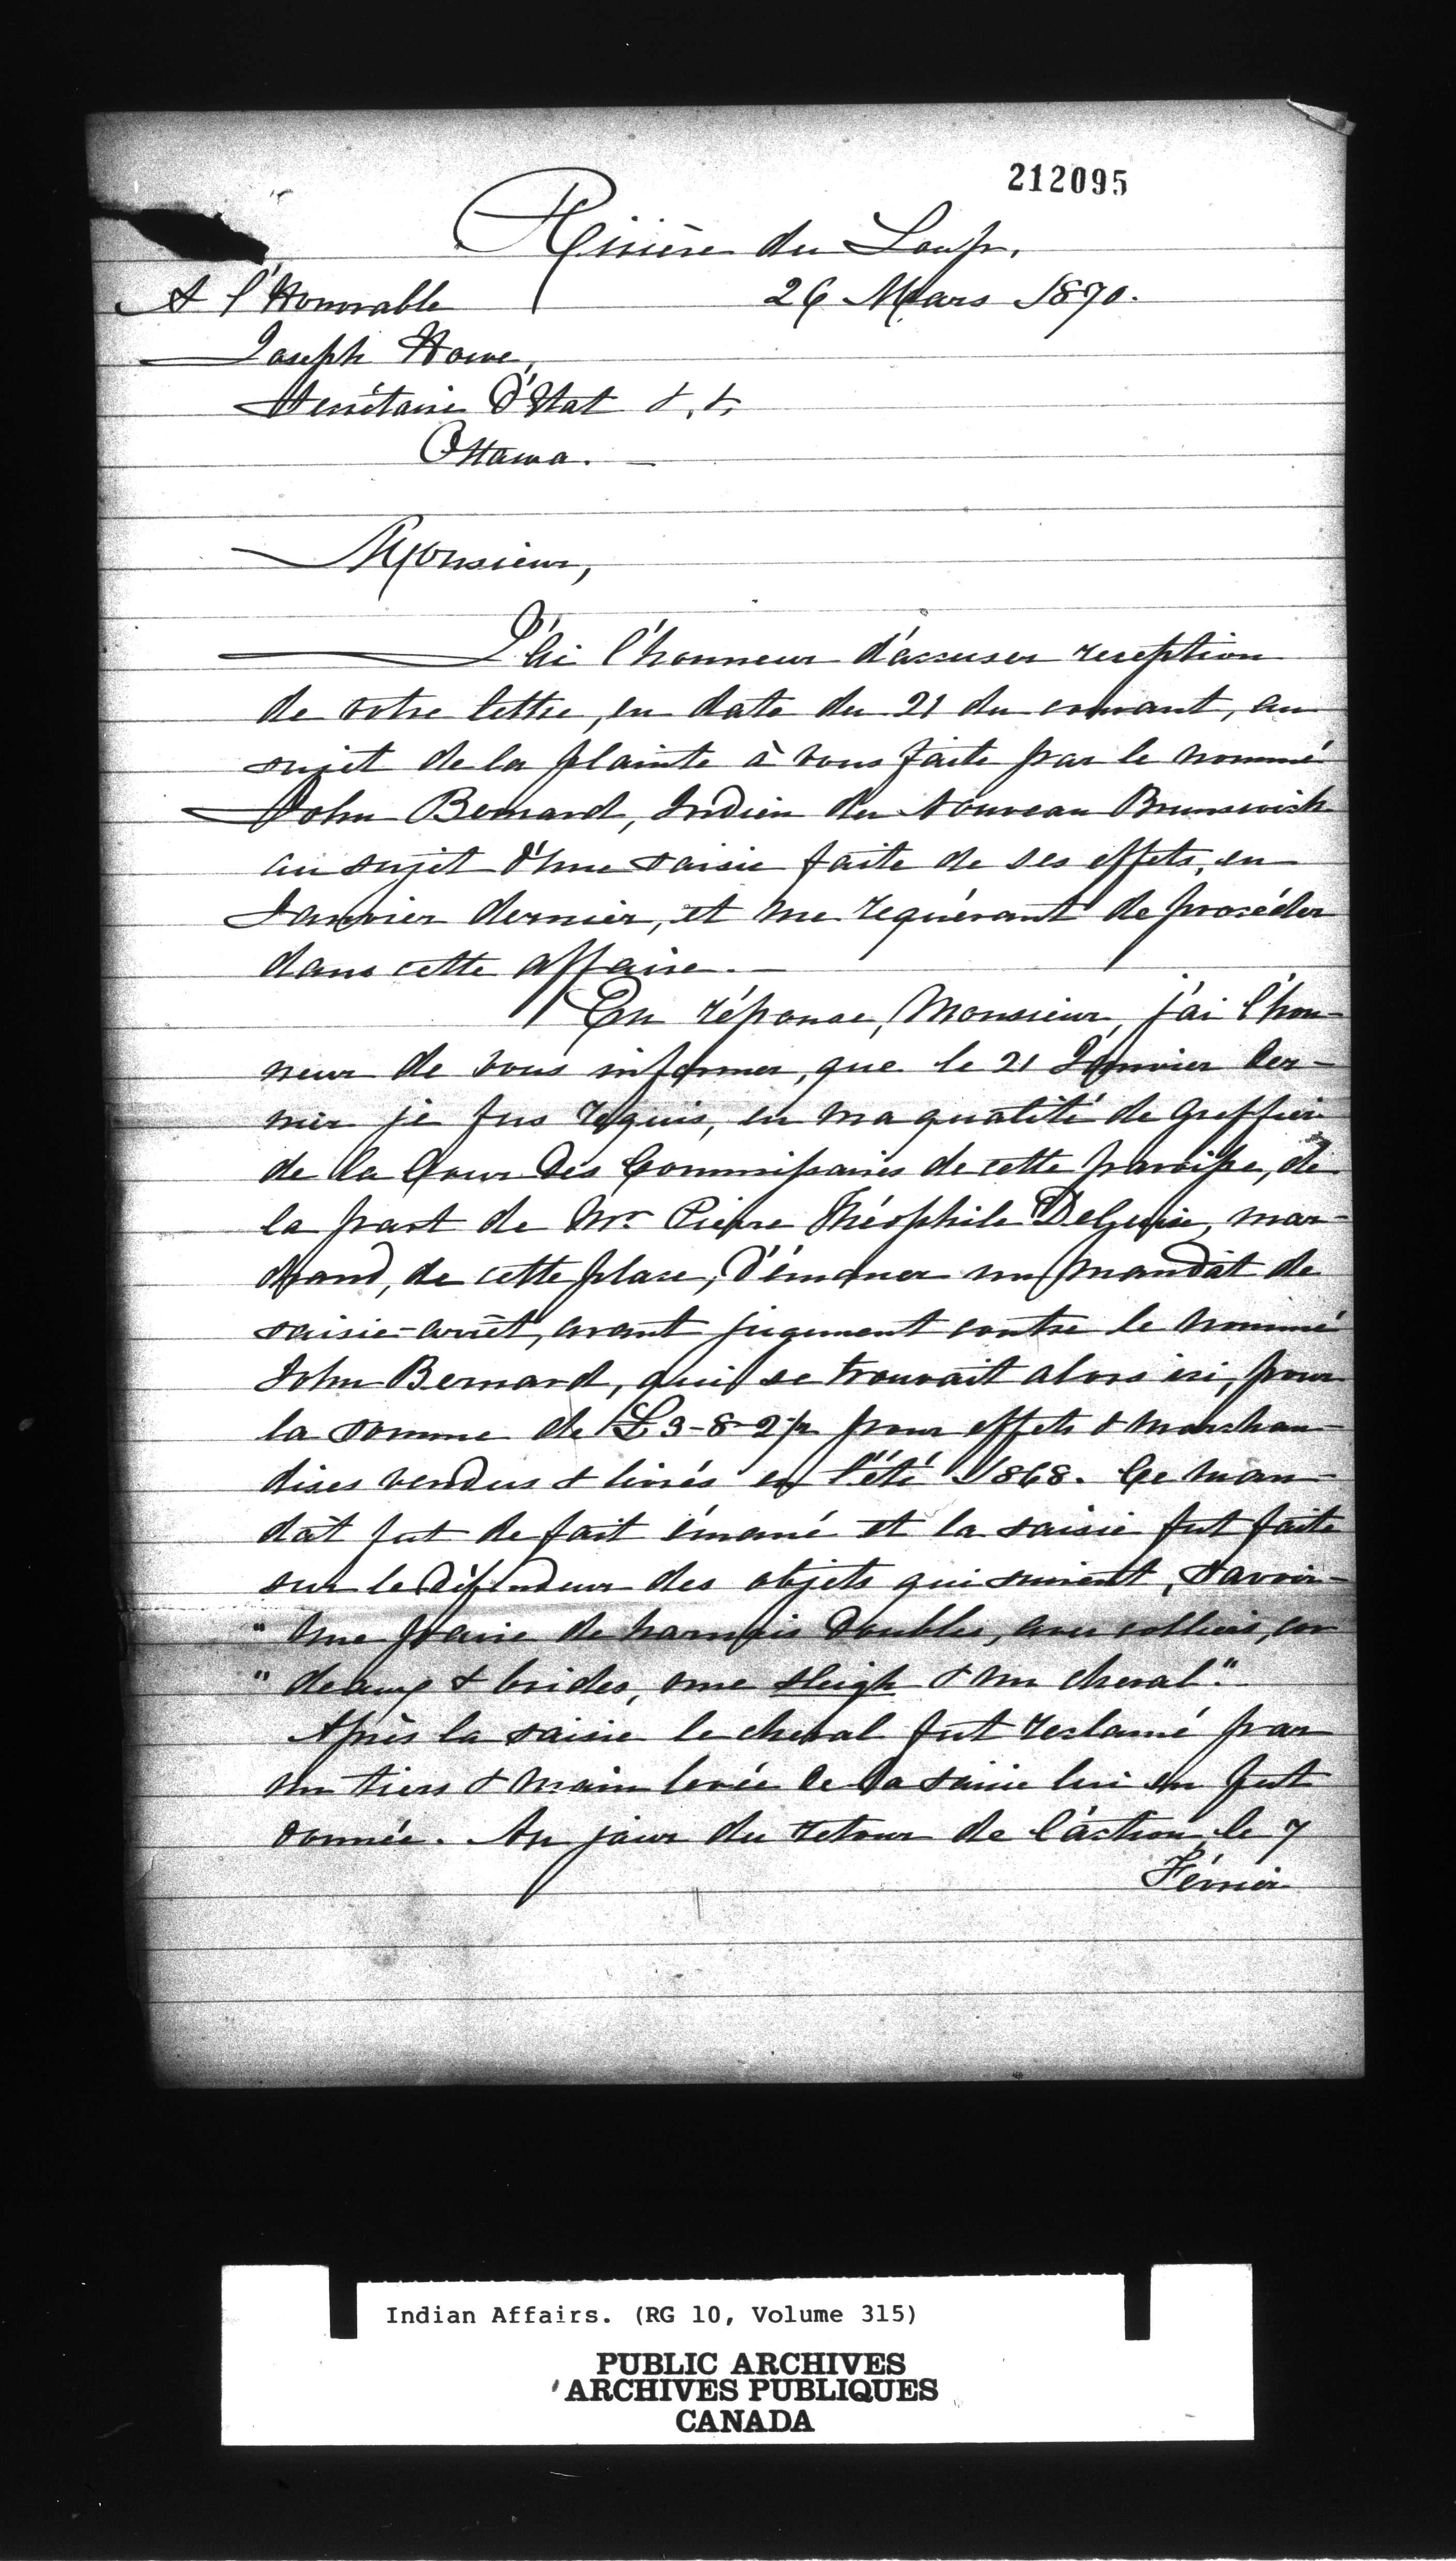 212095
Rivière du Loup,
26 Mars 1870.
A l'Honorable
Joseph Howe,
Secrétaire d'Etat &. &.
Ottawa. —
Monsieur,
J'ai l'honneur d'accuser reception
de votre lettre, en date du 21 du courant, au
sujet de la plainte à vous faite par le nommé
John Bernard, Indien du Nouveau Brunswick
au sujet d'une saisie faite de ses effets, en
Janvier dernier, et me requérant de procéder
dans cette affaire. —
En réponse, Monsieur, j'ai l'hon-
neur de vous informer, que le 21 Janvier der-
nier je fus requis, en ma qualité de Greffier
de la Cour des Commissaires de cette paroisse, de
la part de Mr. Pierre Théophile DeGuise, mar-
chand, de cette place, d'émaner un mandat de
saisie-arrêt, avant jugement contre le nommé
John Bernard, qui se trouvait alors ici, pour
la somme de £3-8-2½ pour effets & marchan-
dises vendus & livrés en l'été 1868. Ce man-
dat fut de fait émané et la saisie fut faite
sur le défendeur des objets qui suivent, savoir -
" Une paire de harnais doubles, avec colliers, cor
" deaux & brides, une sleigh & un cheval".
Après la saisie le cheval fut reclamé par
un tiers & main levée de la saisie lui en fut
donnée. Au jour du retour de l'action, le 7
Février
Indian Affairs. (RG 10, Volume 315)
PUBLIC ARCHIVES
ARCHIVES PUBLIQUES
CANADA